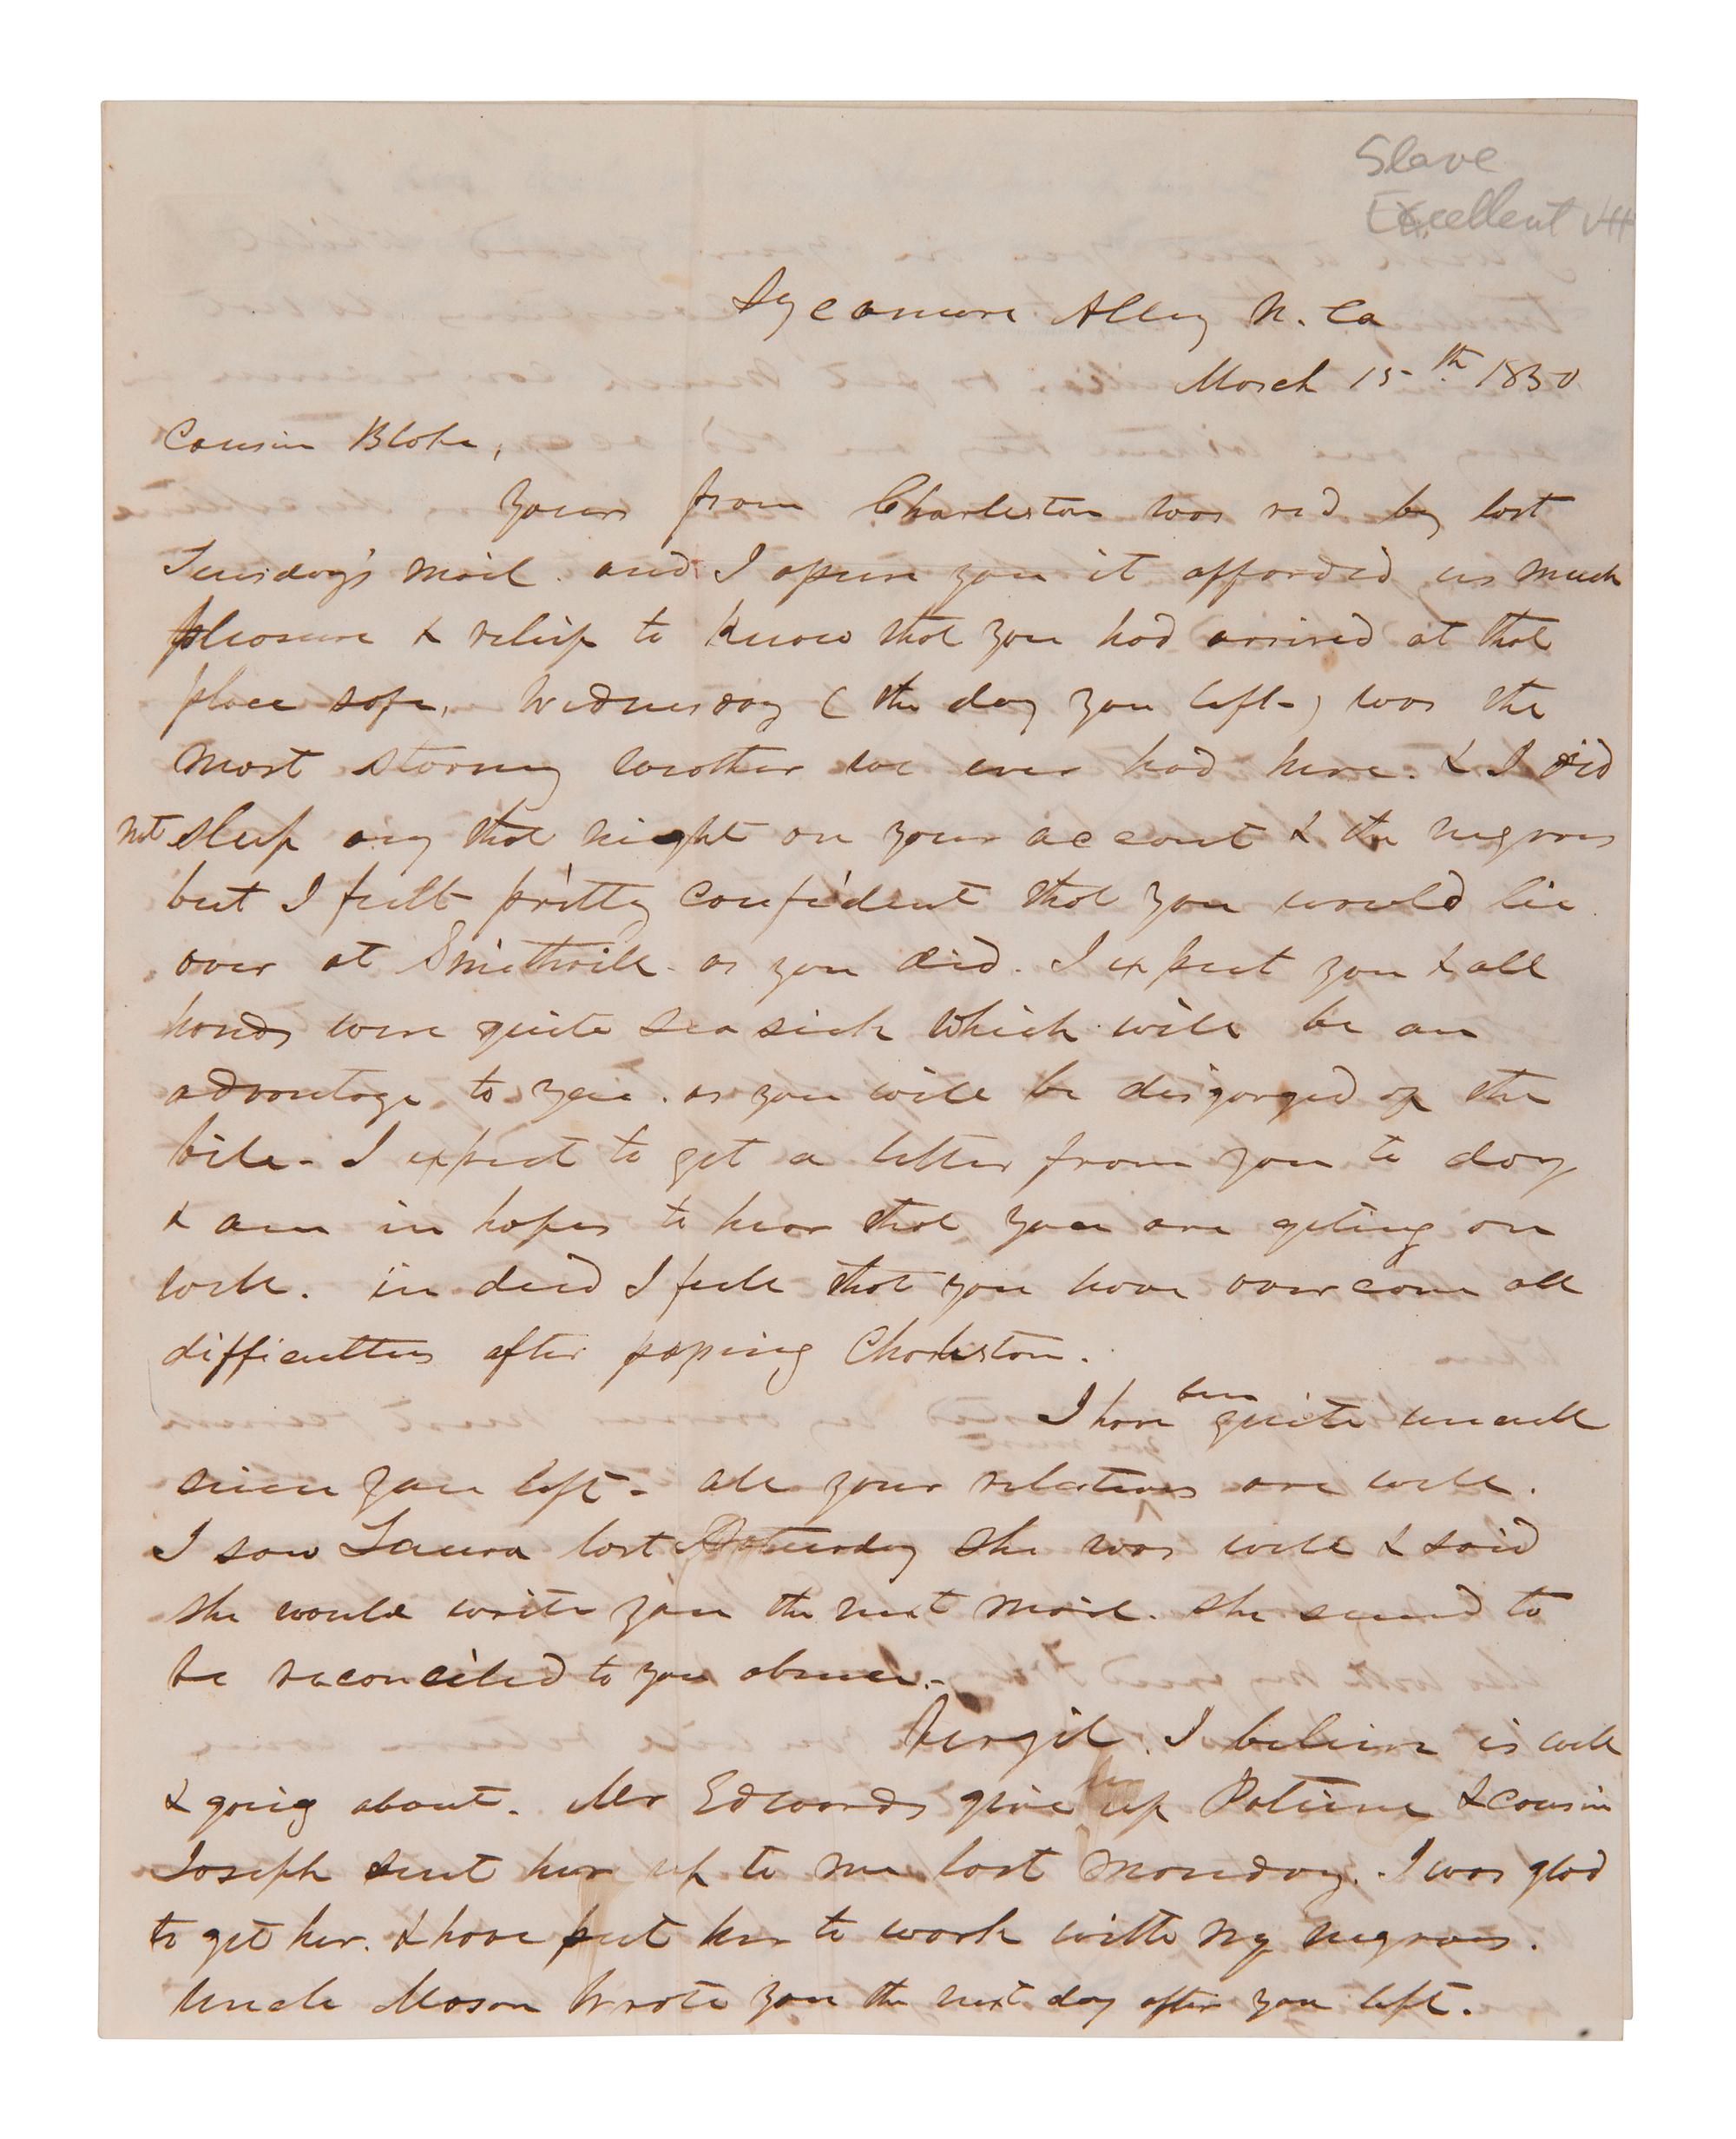 Slave
Excellent
Sycamore Alley N. Ca
March 15th 1850
Cousin Blake,
Yours from Charleston was recd by last
Tuesday's mail. and I assure you it afforded us much
pleasure & relief to know that you had arrived at that
place safe, Wednesday (the day you left-) was the
most stormy weather we ever had here. & I did
not sleep any that night on your account & the negroes
but I felt pretty confident that you would lie
over at Smithvill. as you did. I expect you & all
hands were quite sea sick which will be an
advantage to you. as you will be disgorged of the
bile- I expect to get a letter from you to day
& am in hopes to hear that you are geting on
well. in deed I feel that you have overcome all
difficulties after passing Charleston.
I have been quite unwell
since you left- all your relatives are well.
I saw Laura last Saturday she was well & said
she would write you the next mail. she seemed to
be reconciled to you absence.-
Virgil. I believe is well
& going about. Mr Edwards give up Patience & cousin
Joseph sent her up to me last Monday. I was glad
to get her. & have put her to work with my negroes.
Uncle Mason wrote you the next day after you left.